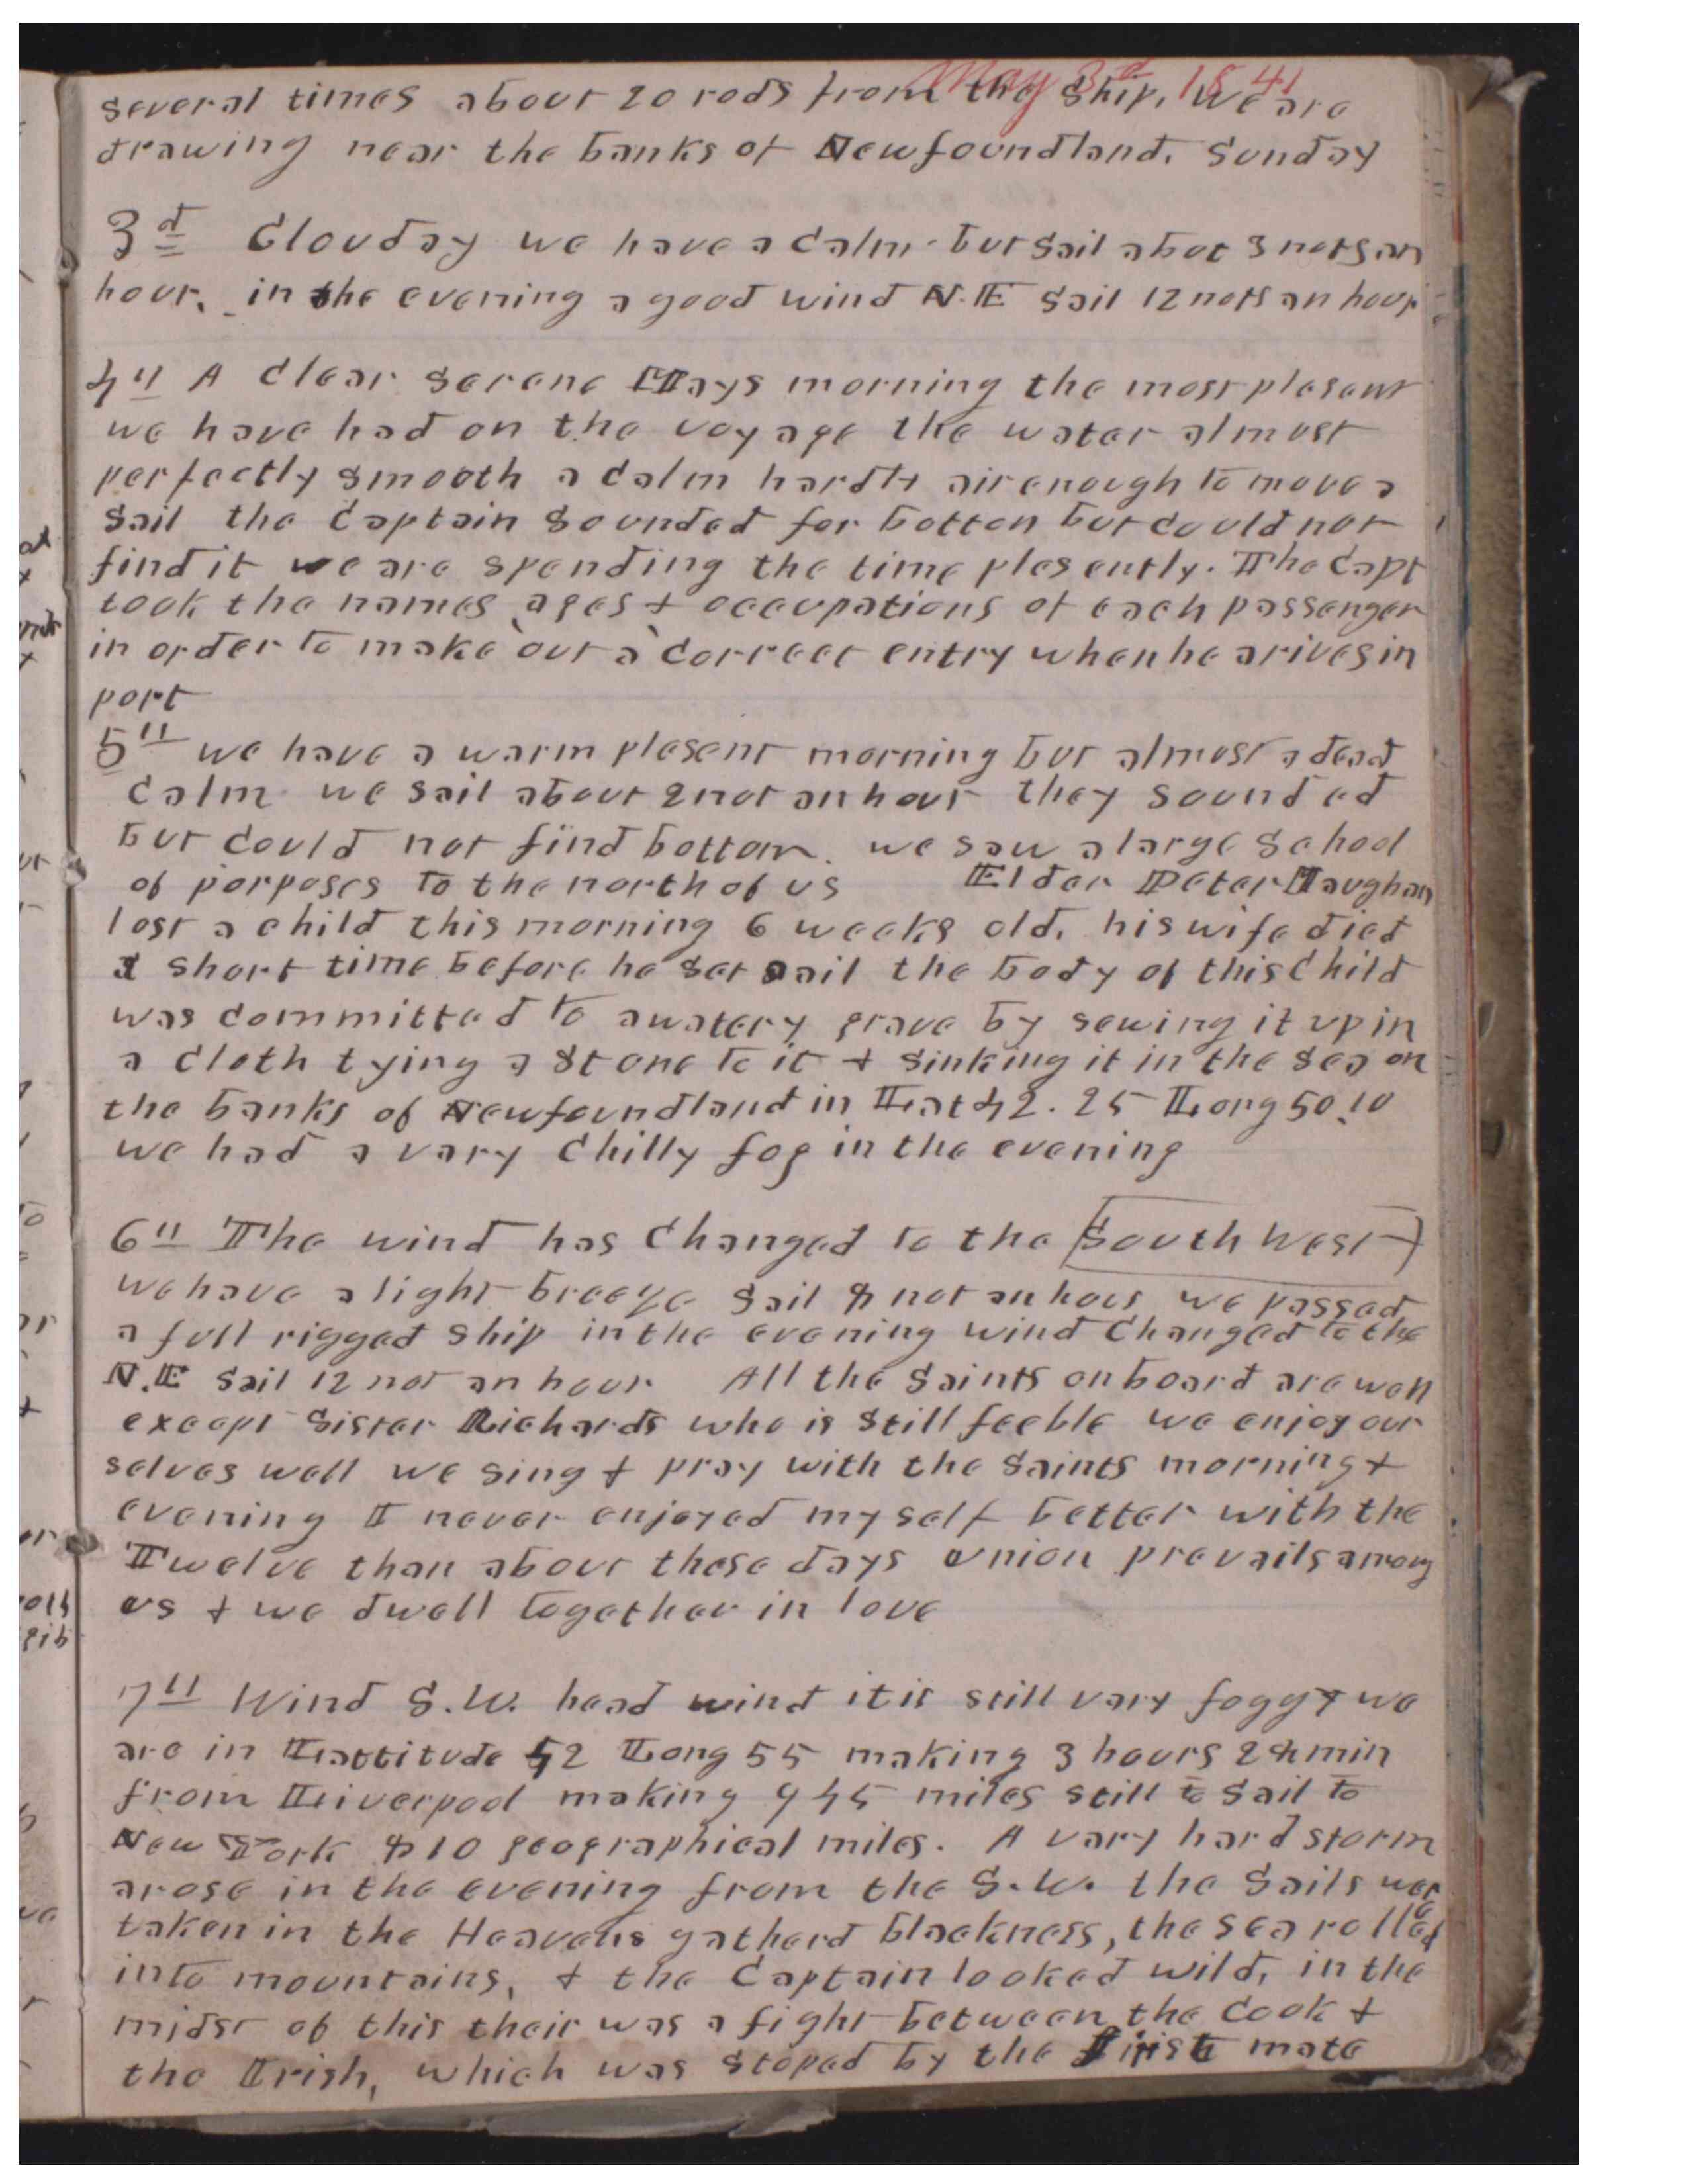 May 3d 1841
several times about 20 rods from the ship. We are
drawing near the banks of Newfoundland. Sunday
3d Clouday we have a calm but sail abot 3 nots an
hour. in the evening a good wind N.E sail 12 nots an hour
4th A clear serene Mays morning the most plesent
we have had on the voyage the water almost
perfectly smooth a calm hardly air enough to move a
sail the Captain sounded for botton but could not
find it we are spending the time plesently. The Capt
took the names ages & occupations of each passenger
in order to make out a correct entry when he arives in
port
5th we have a warm plesent morning but almost a dead
calm we sail about 2 not an hour they sounded
but could not find bottom. we saw a large school
of porposes to the north of us Elder Peter Maughan
lost a child this morning 6 weeks old, his wife died
a short time before he set sail the body of this child
was committed to a watery grave by sewing it up in
a cloth tying a stone to it & sinking it in the sea on
the banks of Newfoundland in Lat 42.25 Long 50.10
we had a vary chilly fog in the evening
6th The wind has changed to the South West
we have a light breeze sail 8 not an hour we passed
a full rigged ship in the evening wind changed to the
N.E sail 12 not an hour All the Saints on board are well
except Sister Richards who is still feeble we enjoy our
selves well we sing & pray with the Saints morning &
evening I never enjoyed myself better with the
Twelve than about these days union prevails among
us & we dwell together in love
7th Wind S.W. head wind it is still vary foggy we
are in Lattitude 42 Long 55 making 3 hours 28 min
from Liverpool making 945 miles still to sail to
New York 810 geographical miles. A vary hard storm
arose in the evening from the S.W. the sails wer
taken in the Heavens gatherd blackness, the sea rolled
into mountains, & the Captain looked wild, in the
midst of this their was a fight between the cook &
the Irish, which was stoped by the First mate